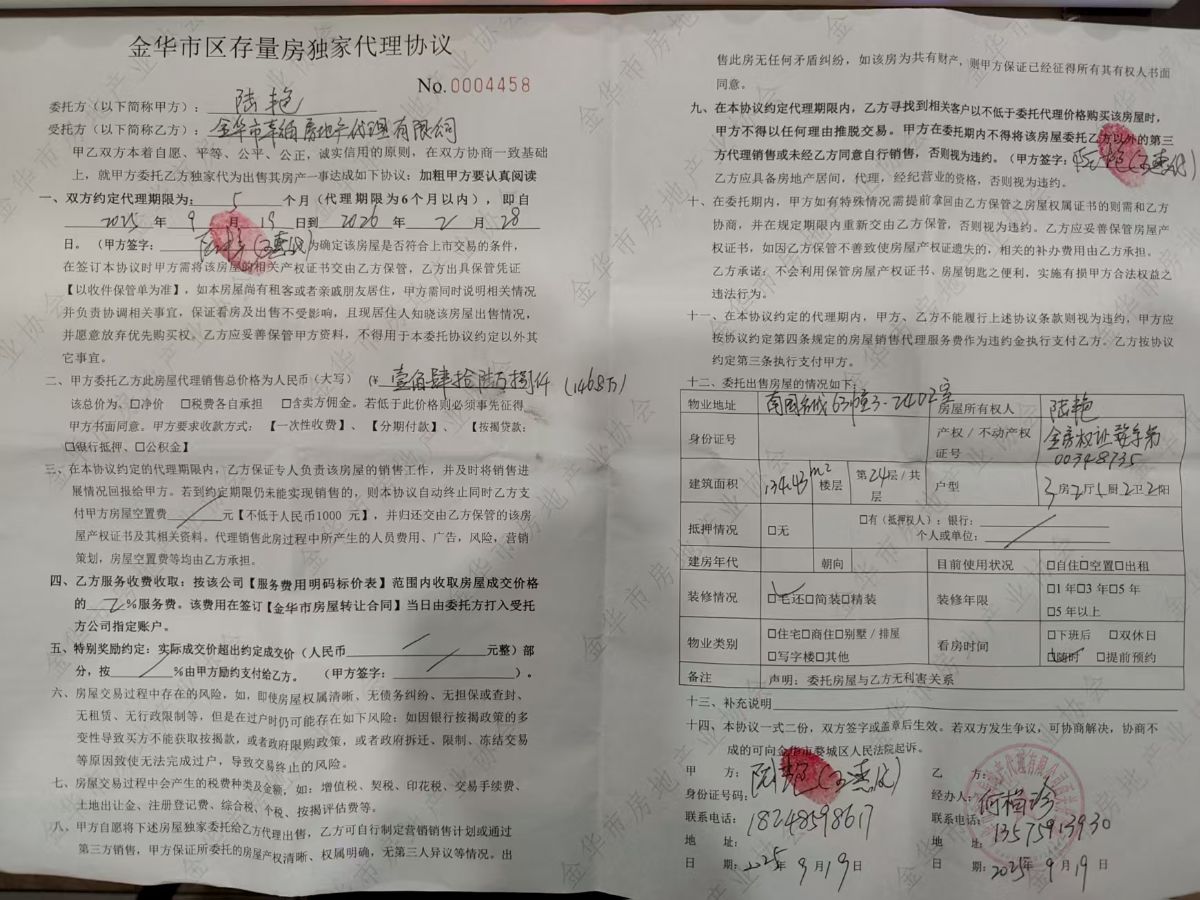 金华市区存量房独家代理协议
No.0004458
委托方（以下简称甲方）：陆艳
受托方（以下简称乙方）：金华市 房地产代理有限公司
甲乙双方本着自愿、平等、公平、公正，诚实信用的原则，在双方协商一致基础
上，就甲方委托乙方独家代为出售其房产一事达成如下协议：加粗甲方要认真阅读
一、双方约定代理期限为：5个月（代理期限为6个月以内），即自
2025年9月19日到2026年2月28
日。（甲方签字：陆艳（ 代）为确定该房屋是否符合上市交易的条件，
在签订本协议时甲方需将该房屋的相关产权证书交由乙方保管，乙方出具保管凭证
【以收件保管单为准】，如本房屋尚有租客或者亲戚朋友居住，甲方需同时说明相关情况
并负责协调相关事宜，保证看房及出售不受影响，且现居住人知晓该房屋出售情况，
并愿意放弃优先购买权。乙方应妥善保管甲方资料，不得用于本委托协议约定以外其
它事宜。
二、甲方委托乙方此房屋代理销售总价格为人民币（大写）（¥壹佰肆拾陆万捌仟（146.8万）
该总价为、□净价 □税费各自承担 □含卖方佣金。若低于此价格则必须事先征得
甲方书面同意。甲方要求收款方式：【一次性收费】、【分期付款】、【按揭贷款：
□银行抵押、□公积金】
三、在本协议约定的代理期限内，乙方保证专人负责该房屋的销售工作，并及时将销售进
展情况回报给甲方。若到约定期限仍未能实现销售的，则本协议自动终止同时乙方支
付甲方房屋空置费／元【不低于人民币1000 元】，并归还交由乙方保管的该房
屋产权证书及其相关资料。代理销售此房过程中所产生的人员费用、广告，风险，营销
策划，房屋空置费等均由乙方承担。
四、乙方服务收费收取：按该公司【服务费用明码标价表】范围内收取房屋成交价格
的2%服务费。该费用在签订【金华市房屋转让合同】当日由委托方打入受托
方公司指定账户。
五、特别奖励约定：实际成交价超出约定成交价（人民币／元整）部
分，按／%由甲方励约支付给乙方。（甲方签字：／）。
六、房屋交易过程中存在的风险，如，即使房屋权属清晰、无债务纠纷、无担保或查封、
无租赁、无行政限制等，但是在过户时仍可能存在如下风险：如因银行按揭政策的多
变性导致买方不能获取按揭款，或者政府限购政策，或者政府拆迁、限制、冻结交易
等原因致使无法完成过户，导致交易终止的风险。
七、房屋交易过程中会产生的税费种类及金额，如：增值税、契税、印花税、交易手续费、
土地出让金、注册登记费、综合税、个税、按揭评估费等。
八、甲方自愿将下述房屋独家委托给乙方代理出售，乙方可自行制定营销销售计划或通过
第三方销售，甲方保证所委托的房屋产权清晰、权属明确，无第三人异议等情况。出
售此房无任何矛盾纠纷，如该房为共有财产，则甲方保证已经征得所有其有权人书面
同意。
九、在本协议约定代理期限内，乙方寻找到相关客户以不低于委托代理价格购买该房屋时，
甲方不得以任何理由推脱交易。甲方在委托期内不得将该房屋委托乙方以外的第三
方代理销售或未经乙方同意自行销售，否则视为违约。（甲方签字：陆艳（ 代）
乙方应具备房地产居间，代理，经纪营业的资格，否则视为违约。
十、在委托期内，甲方如有特殊情况需提前拿回由乙方保管之房屋权属证书的则需和乙方
协商，并在规定期限内重新交由乙方保管，否则视为违约。乙方应妥善保管房屋产
权证书，如因乙方保管不善致使房屋产权证遗失的，相关的补办费用由乙方承担。
乙方承诺：不会利用保管房屋产权证书、房屋钥匙之便利，实施有损甲方合法权益之
违法行为。
十一、在本协议约定的代理期内，甲方、乙方不能履行上述协议条款则视为违约，甲方应
按协议约定第四条规定的房屋销售代理服务费作为违约金执行支付乙方。乙方按协议
约定第三条执行支付甲方。
十二、委托出售房屋的情况如下：
物业地址 南国名城63幢3-2402室 房屋所有权人 陆艳
身份证号 产权／不动产权证号 金房权证婺字第00348735
建筑面积 134.43m² 楼层 第24层/共 层 户型 3房2厅1厨2卫2阳
抵押情况 □无 □有（抵押权人）：银行：
个人或单位：
建房年代 朝向 目前使用状况 □自住□空置□出租
装修情况 □毛还□简装□精装 装修年限 □1年□3年□5年
□5年以上
物业类别 □住宅□商住□别墅／排屋
□写字楼□其他 看房时间 □下班后 □双休日
□随时 □提前预约
备注 声明：委托房屋与乙方无利害关系
十三、补充说明
十四、本协议一式二份，双方签字或盖章后生效。若双方发生争议，可协商解决，协商不
成的可向金华市婺城区人民法院起诉。
甲 方：陆艳（ 代） 乙 方：
身份证号码： 经办人：何梅珍
联系电话：18248598617 联系电话：13575913930
地 址： 地 址：
日 期：2025年9月19日 日 期：2025年9月19日